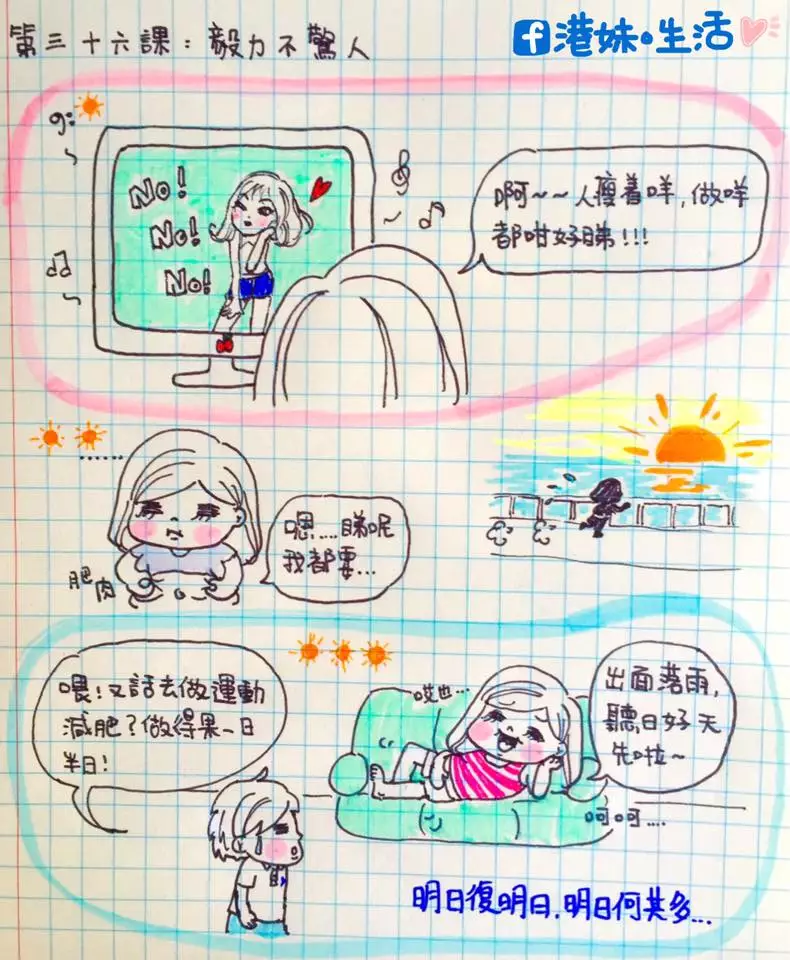 第三十六課：毅力不驚人
f 港妹。生活
No!
No!
No!
啊～～人瘦着咩,做咩
都咁好睇!!!
......
嗯....睇嚟
我都要...
肥肉
喂!又話去做運動
減肥?做得果一日
半日!
哎也...
出面落雨,
聽日好天
先啦～
呵呵....
明日復明日,明日何其多...